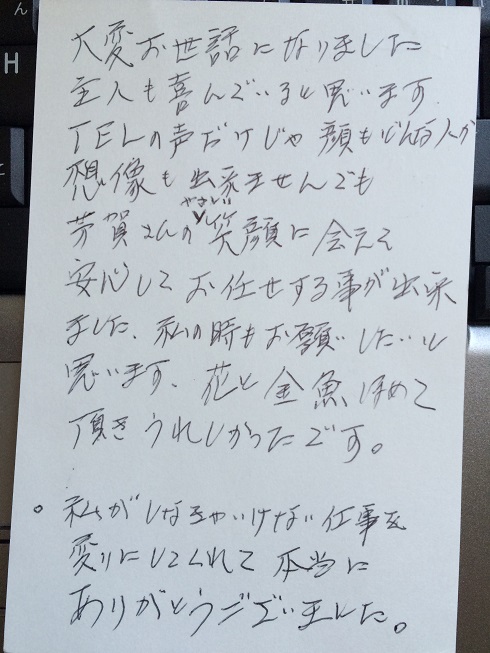 ん
H
大変お世話になりました
主人も喜んでいると思います
TELの声だけじゃ顔もどんな人か
想像も出来ませんでも
芳賀さんのやさしい笑顔に会えて
安心してお任せする事が出来
ました、私の時もお願いしたいと
思います、花と金魚ほめて
頂きうれしかったです。
。私がしなきゃいけない仕事を
変りにしてくれて本当に
ありがとうございました。